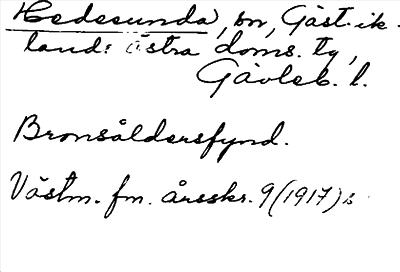 Hedesunda, sn, Gästrik-
lands östra doms. tg,
Gävleb. l.
Bronsåldersfynd.
Västm. fm. årsskr. 9 (1917) s.